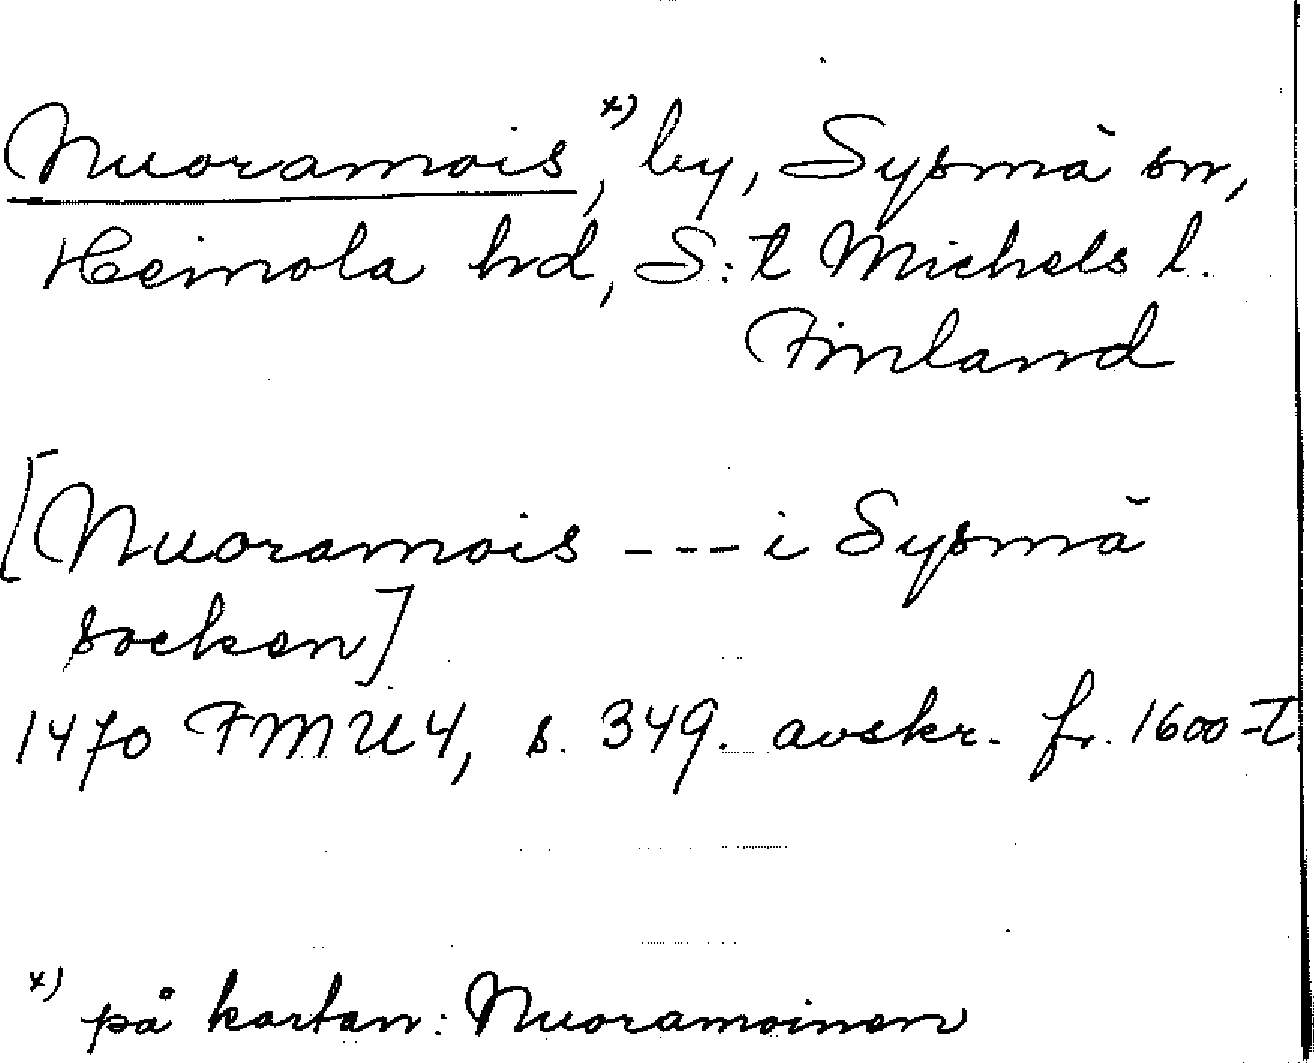 Nuoramois,ˣ⁾ by, Sysmä sn,
Heinola hd, S:t Michels l.
Finland
[Nuoramois --- i Sysmä
socken]
1470 FMU 4, s. 349. avskr. fr. 1600-t
ˣ⁾ på kartan: Nuoramoinen